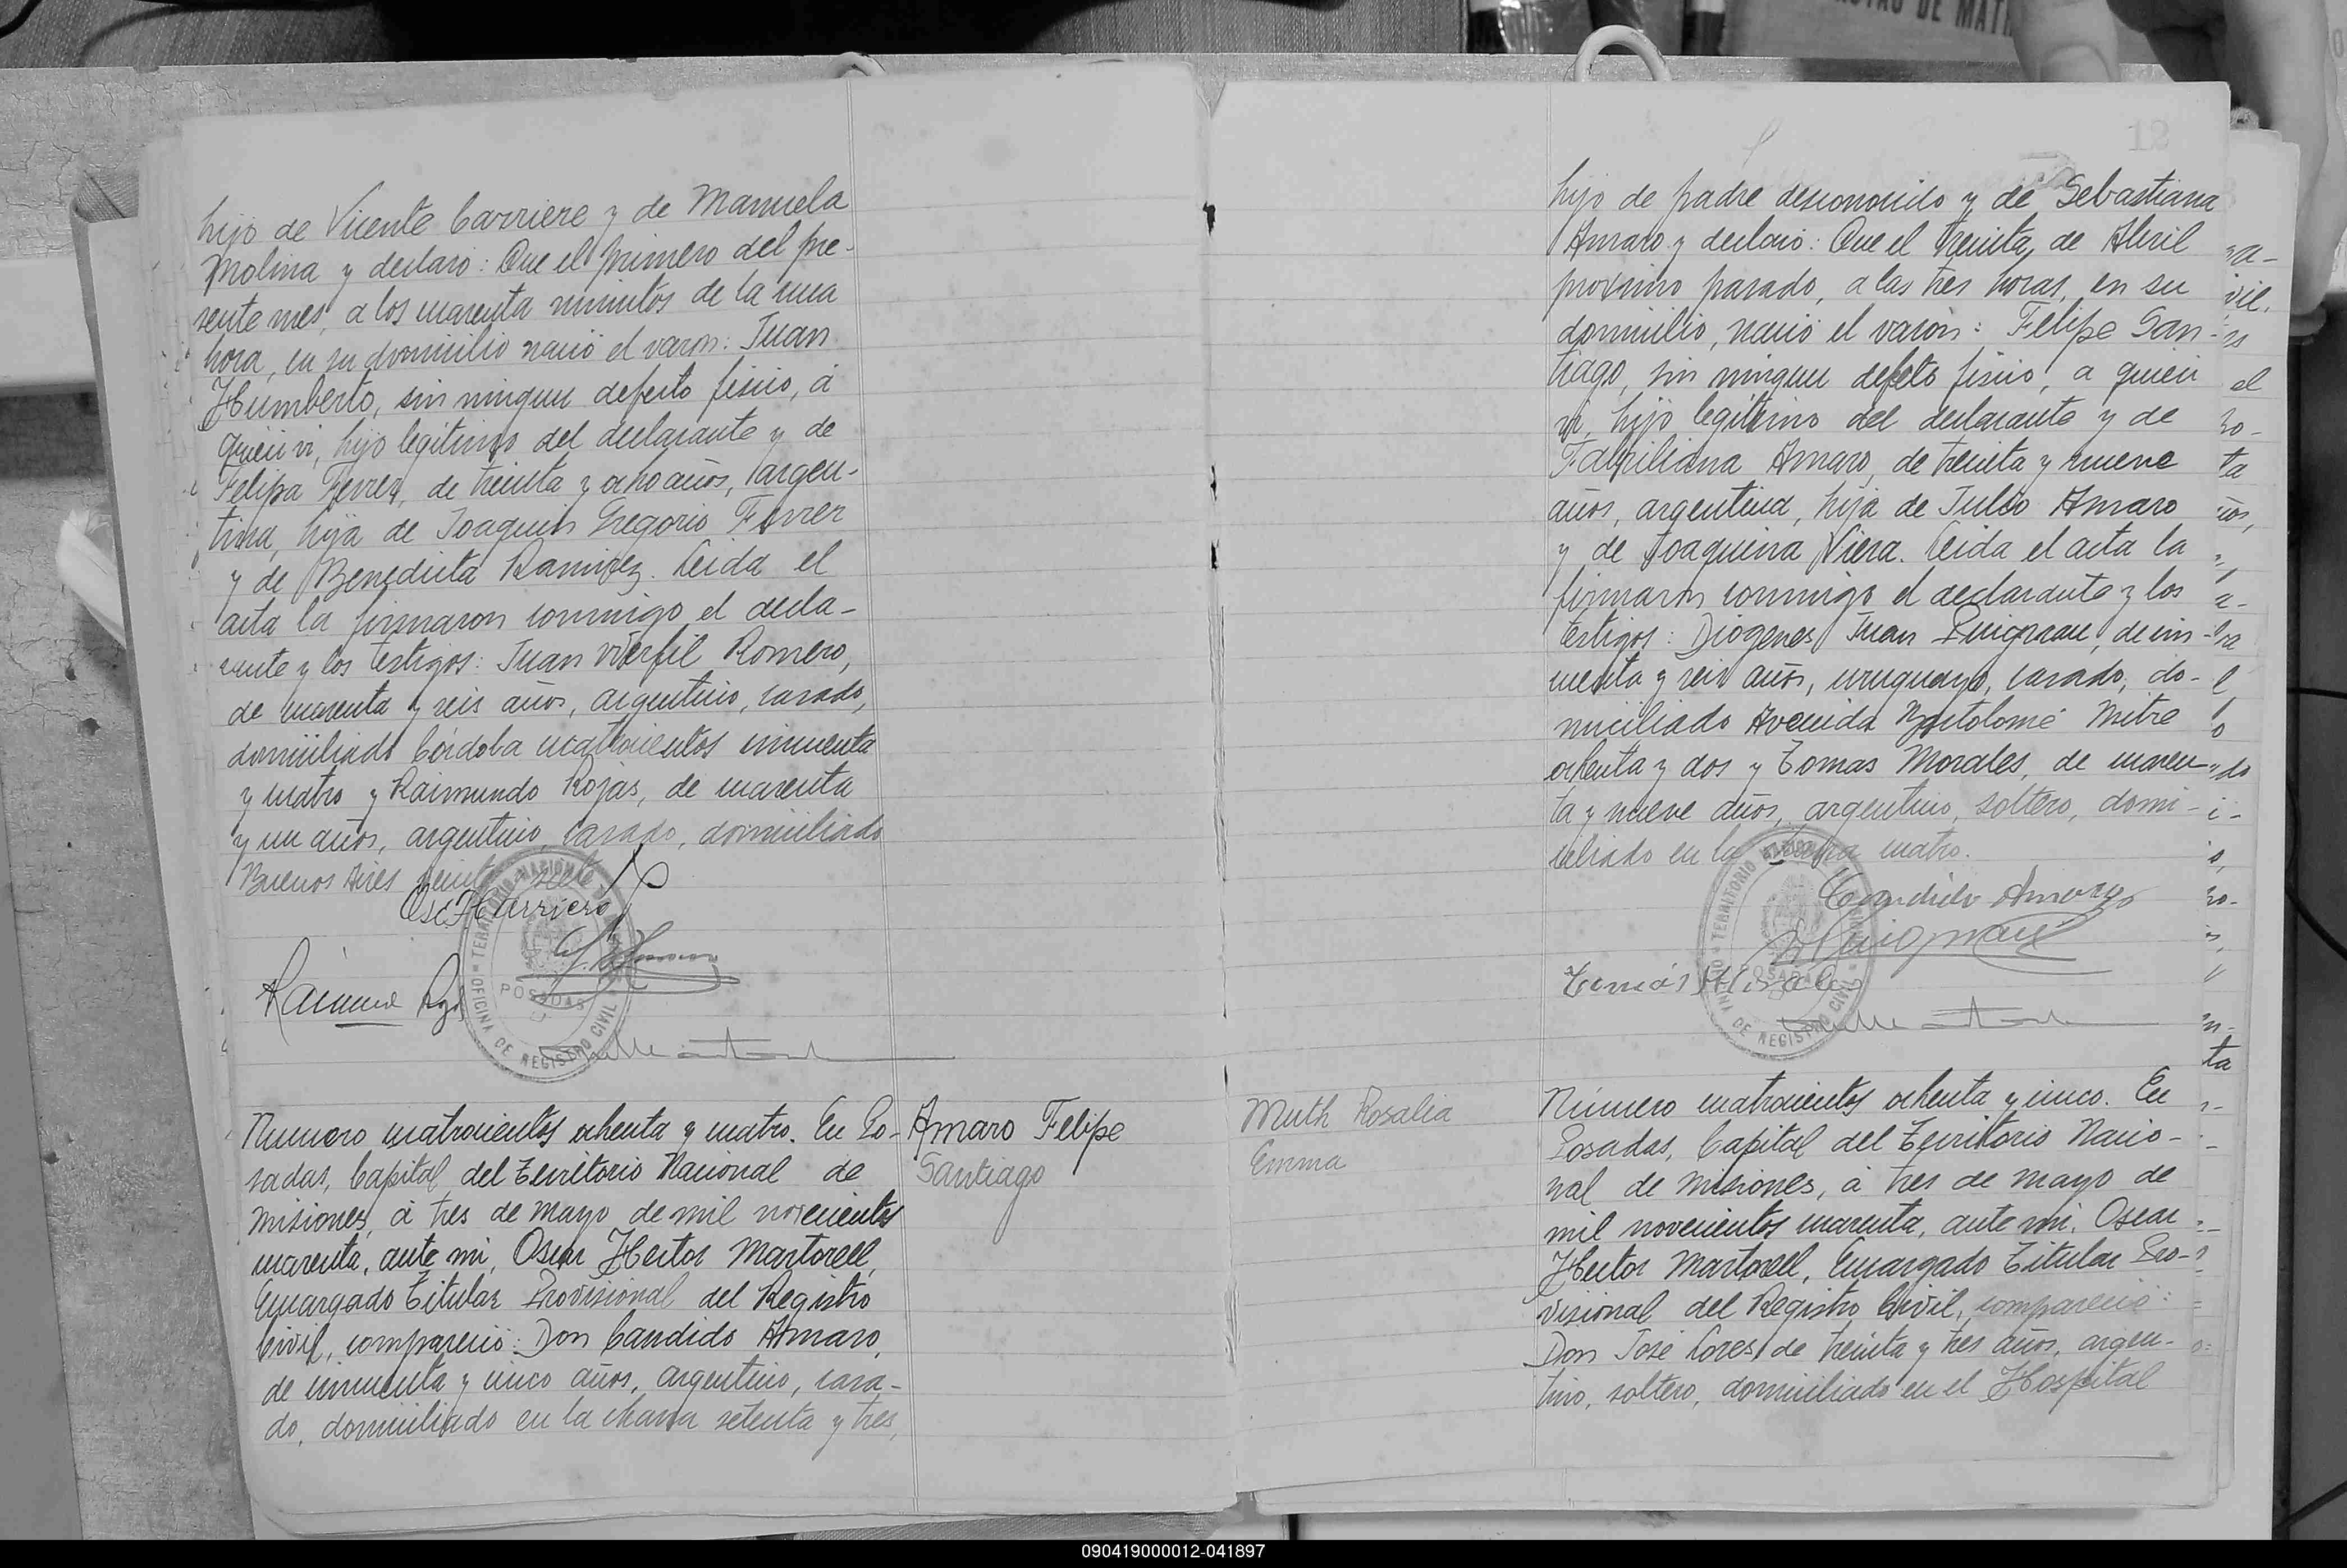 hijo de Vicente Carriere y de Manuela
Molina y declaró: Que el primero del pre-
sente mes, a los cuarenta minutos de la una
hora, en su domicilio nació el varon: Juan
Humberto, sin ningun defecto fisico, á
quien vi, hijo legitimo del declarante y de
Felipa Ferrer, de treinta y ocho años, argen-
tina, hija de Joaquin Gregorio Ferrer
y de Benedicta Ramirez. Leida el
acta la firmaron conmigo el decla-
rante y los testigos: Juan Romero,
de cuarenta y seis años, argentino, casado,
domiciliado Córdoba cuatrocientos cincuenta
y cuatro y Raimundo Rojas, de cuarenta
y un años, argentino, casado, domiciliado
Buenos Aires siete
TERRITORIO NACIONAL
POSADAS
OFICINA DE REGISTRO CIVIL
Numero cuatrocientos ochenta y cuatro. En Po-
sadas, Capital del Territorio Nacional de
Misiones, á tres de Mayo de mil novecientos
cuarenta, ante mi, Oscar Hector Martorell,
Encargado Titular Provisional del Registro
Civil, compareció: Don Candido Amaro,
de cincuenta y cinco años, argentino, casa-
do, domiciliado en la chacra setenta y tres,
Amaro Felipe
Santiago
12
hijo de padre desconocido y de Sebastiana
Amaro y declaró: Que el treinta, de Abril
proximo pasado, a las tres horas, en su
domicilio, nació el varón: Felipe San-
tiago, sin ningun defeto fisico, a quien
vi, hijo legitimo del declarante y de
Amaro, de treinta y nueve
años, argentina, hija de Julio Amaro
y de Joaquina Viera. Leida el acta la
firmaron conmigo el declarante y los
testigos: Diogenes Juan Puignau, de cin-
cuenta y seis años, uruguayo, casado, do-
miciliado Avenida Bartolomé Mitre
ochenta y dos y Tomas Morales, de cuaren-
ta y nueve años, argentino, soltero, domi-
ciliado en la chacra cuatro.
Candido Amaro
Puignau
Tomás Morales
TERRITORIO
POSADAS
OFICINA DE REGISTRO CIVIL
Muth Rosalia
Emma
Número cuatrocientos ochenta y cinco. En
Posadas, Capital del Territorio Nacio-
nal de Misiones, á tres de Mayo de
mil novecientos cuarenta, ante mi, Oscar
Hector Martorell, Encargado Titular Pro-
visional del Registro Civil, compareció:
Don José Cores de treinta y tres años, argen-
tino, soltero, domiciliado en el Hospital
090419000012-041897